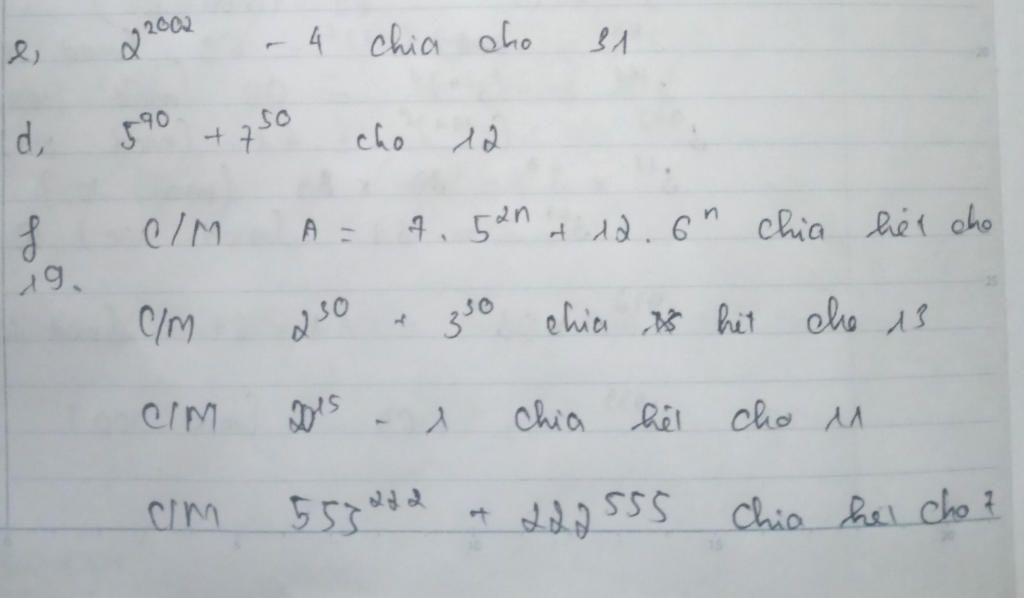 e, 2^2002 - 4 chia cho 31
d, 5^90 + 7^50 cho 12
f C/M A = 7. 5^2n + 12. 6^n chia hết cho
19.
C/M 2^30 + 3^30 chia hết cho 13
C/M 20^15 - 1 chia hết cho 11
C/M 553^222 + 222^555 chia hết cho 7